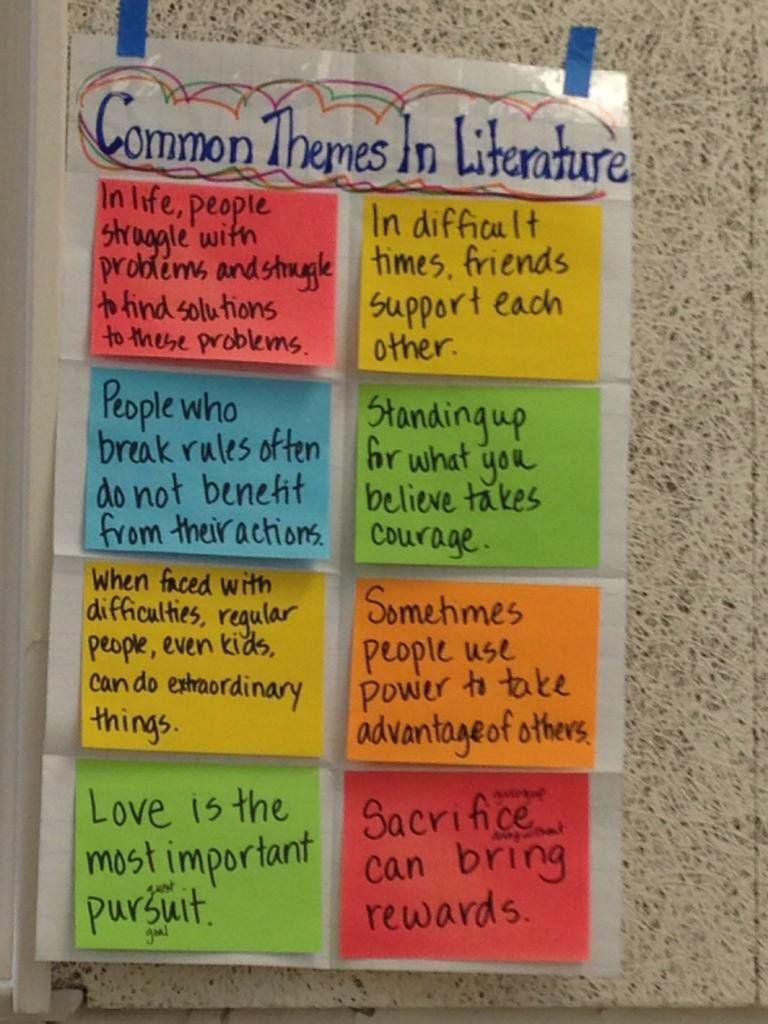 Common Themes In Literature
In life, people
struggle with
problems and struggle
to find solutions
to these problems.
In difficult
times, friends
support each
other.
People who
break rules often
do not benefit
from their actions.
Standing up
for what you
believe takes
courage.
When faced with
difficulties, regular
people, even kids,
can do extraordinary
things.
Sometimes
people use
power to take
advantage of others.
Love is the
most important
quest
pursuit.
goal
giving up
Sacrifice
doing without
can bring
rewards.